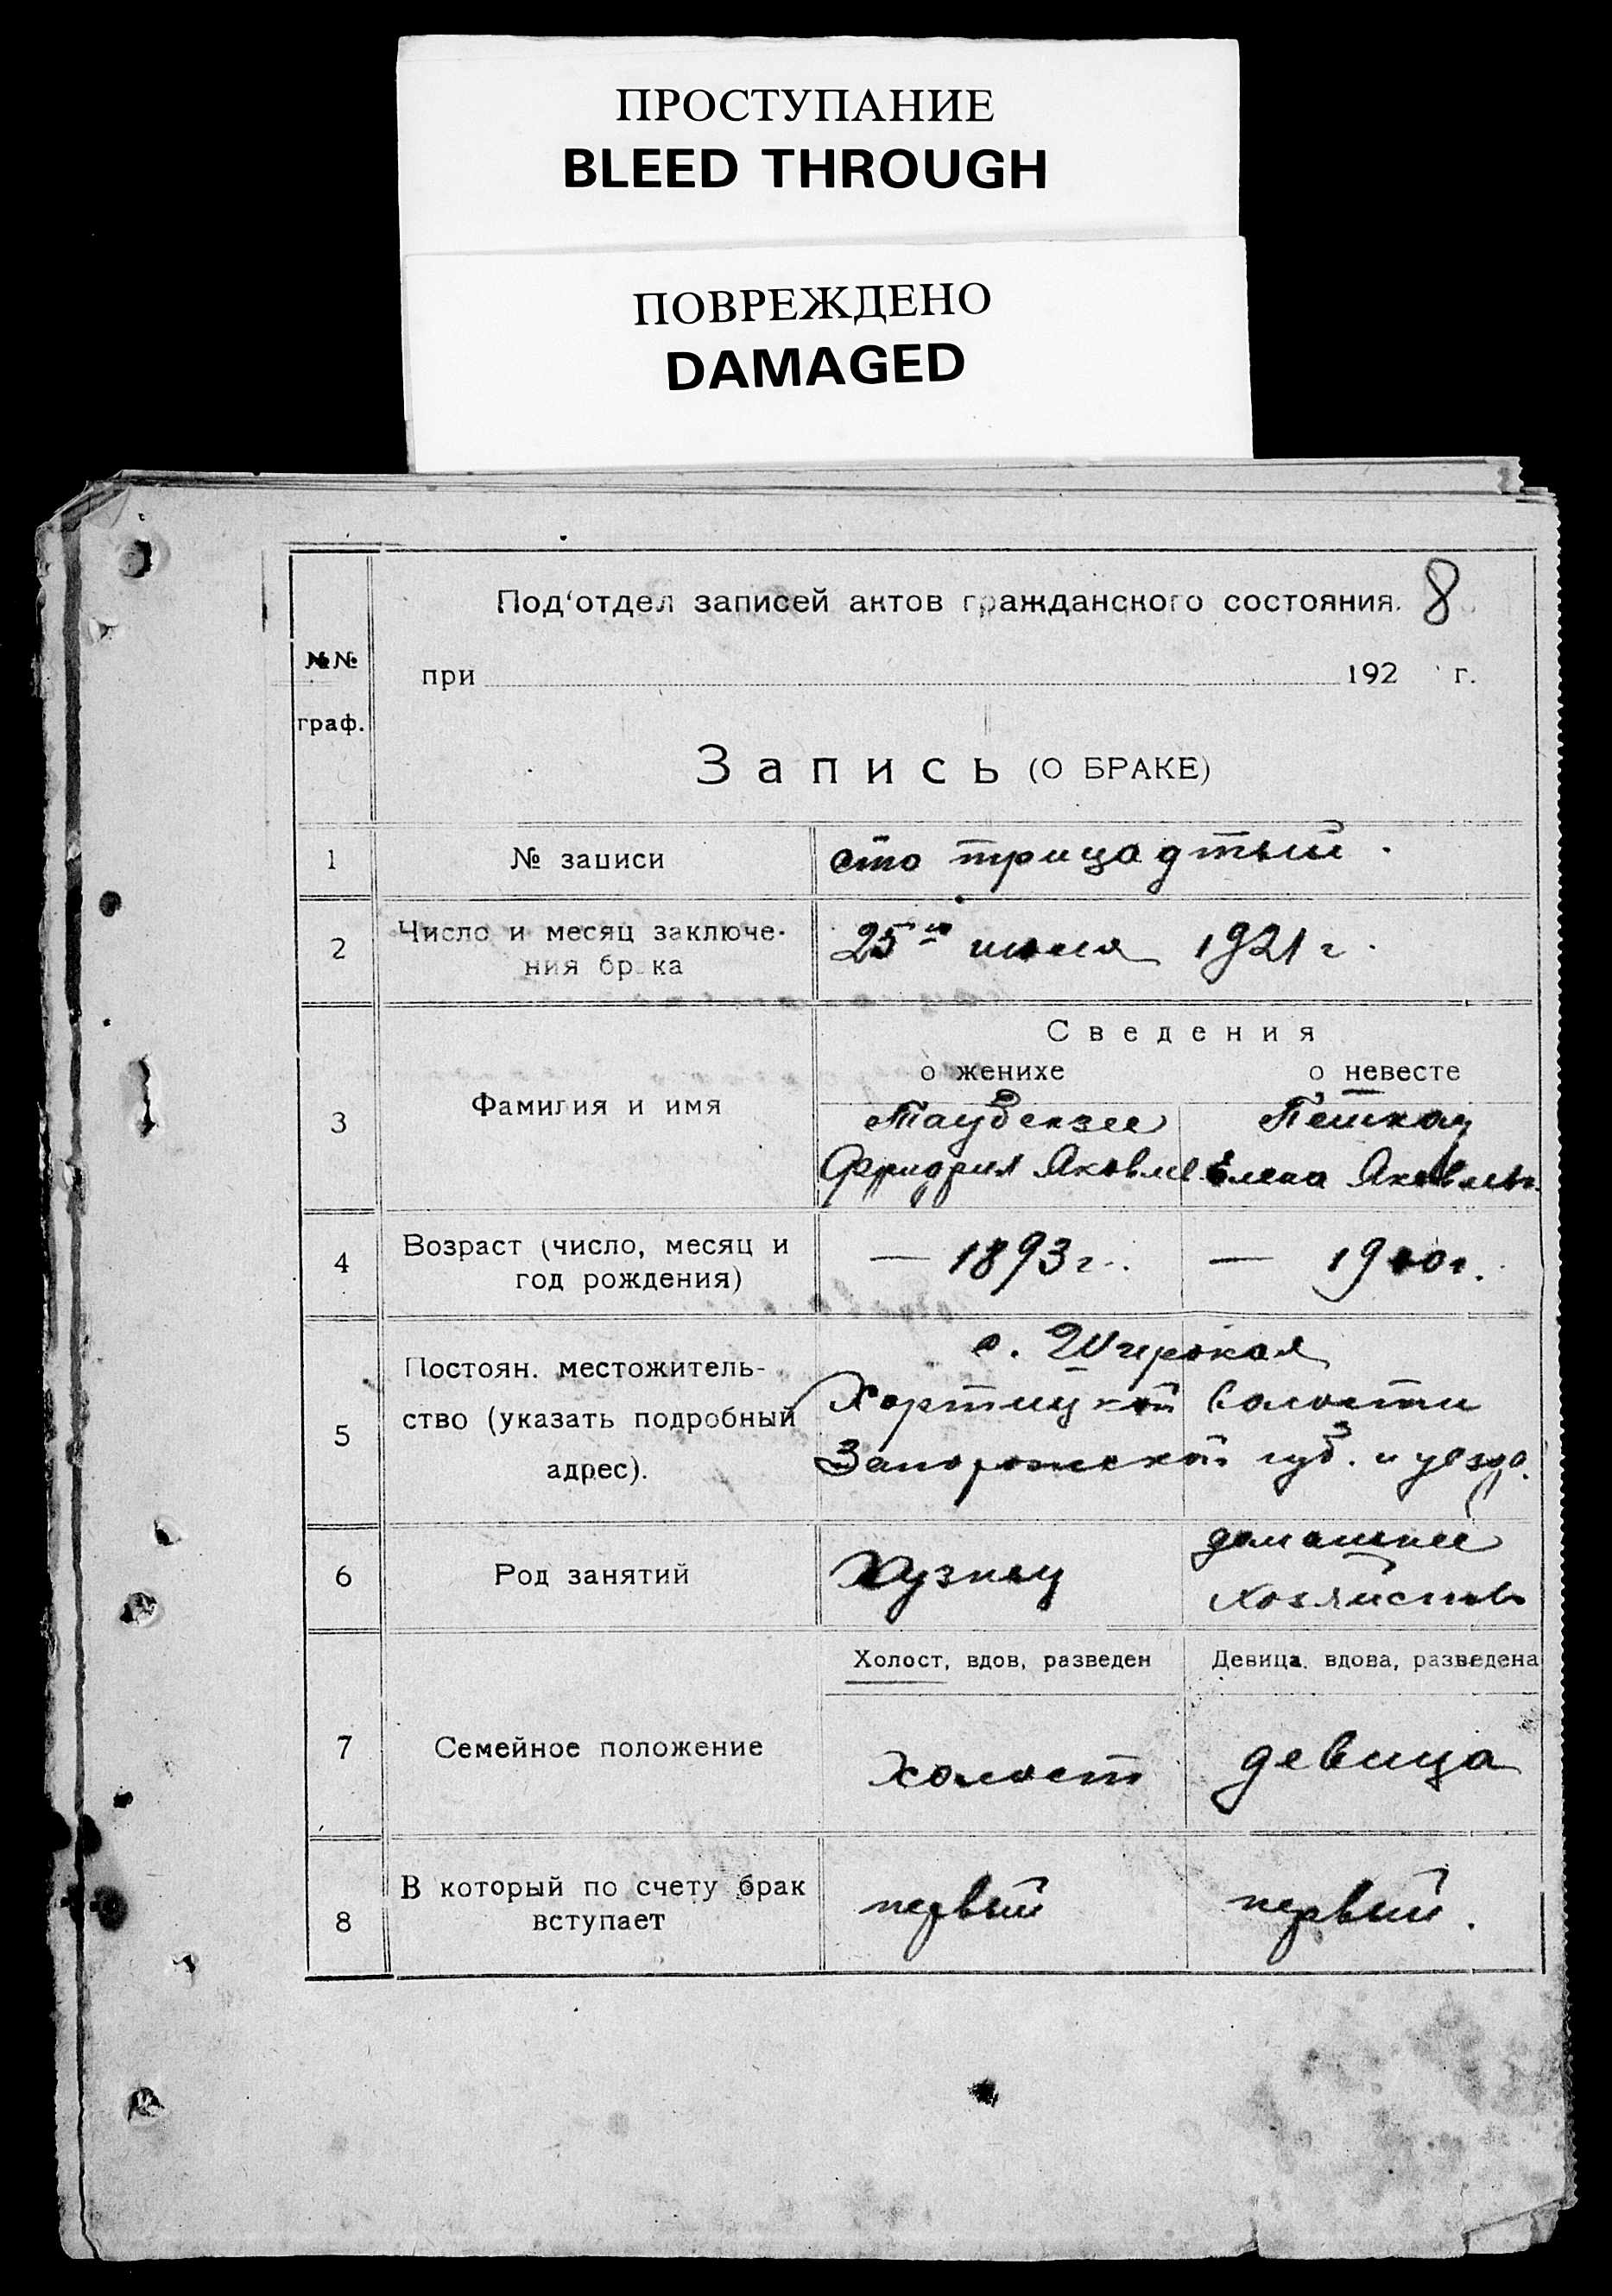 ПРОСТУПАНИЕ
BLEED THROUGH
ПОВРЕЖДЕНО
DAMAGED
Под'отдел записей актов гражданского состояния. 8
№№
граф.
при 192 г.
Запись (О БРАКЕ)
1 № записи сто трицадтый.
2 Число и месяц заключе-
ния брака
25го июля 1921 г.
Сведения
о женихе о невесте
3 Фамилия и имя
Таубензее Петкау
Фридрих Яковлев Елена Яковлевн.
4 Возраст (число, месяц и
год рождения)
— 1893 г. — 1900 г.
5 Постоян. местожитель-
ство (указать подробный
адрес).
с. Широкая
Хортицкой волости
Запорожской губ. и уезда.
6 Род занятий
Кузнец домашнее
хозяйство
Холост, вдов, разведен Девица, вдова, разведена
7 Семейное положение
холост девица
8 В который по счету брак
вступает
первый первый.